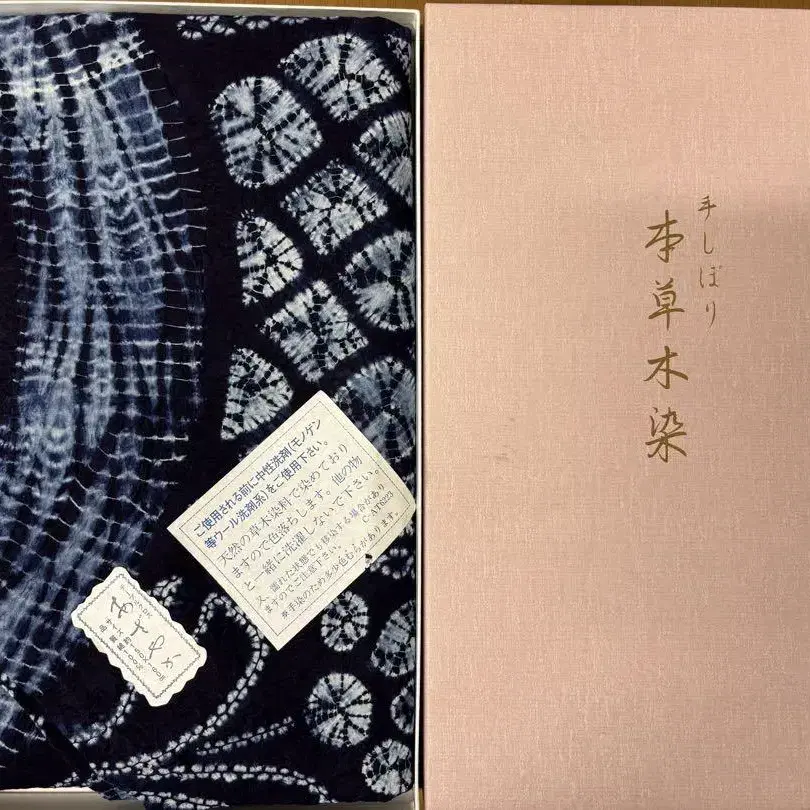 手しぼり
本草木染
ご使用される前に中性洗剤(モノゲン
等ウール洗剤系)をご使用下さい。
天然の草木染料で染めており
ますので色落ちします。他の物
と一緒に洗濯しないで下さい。
又、濡れた状態でも移染する場合があり
ますのでご注意下さい。
※手染のため多少色むらがあります。